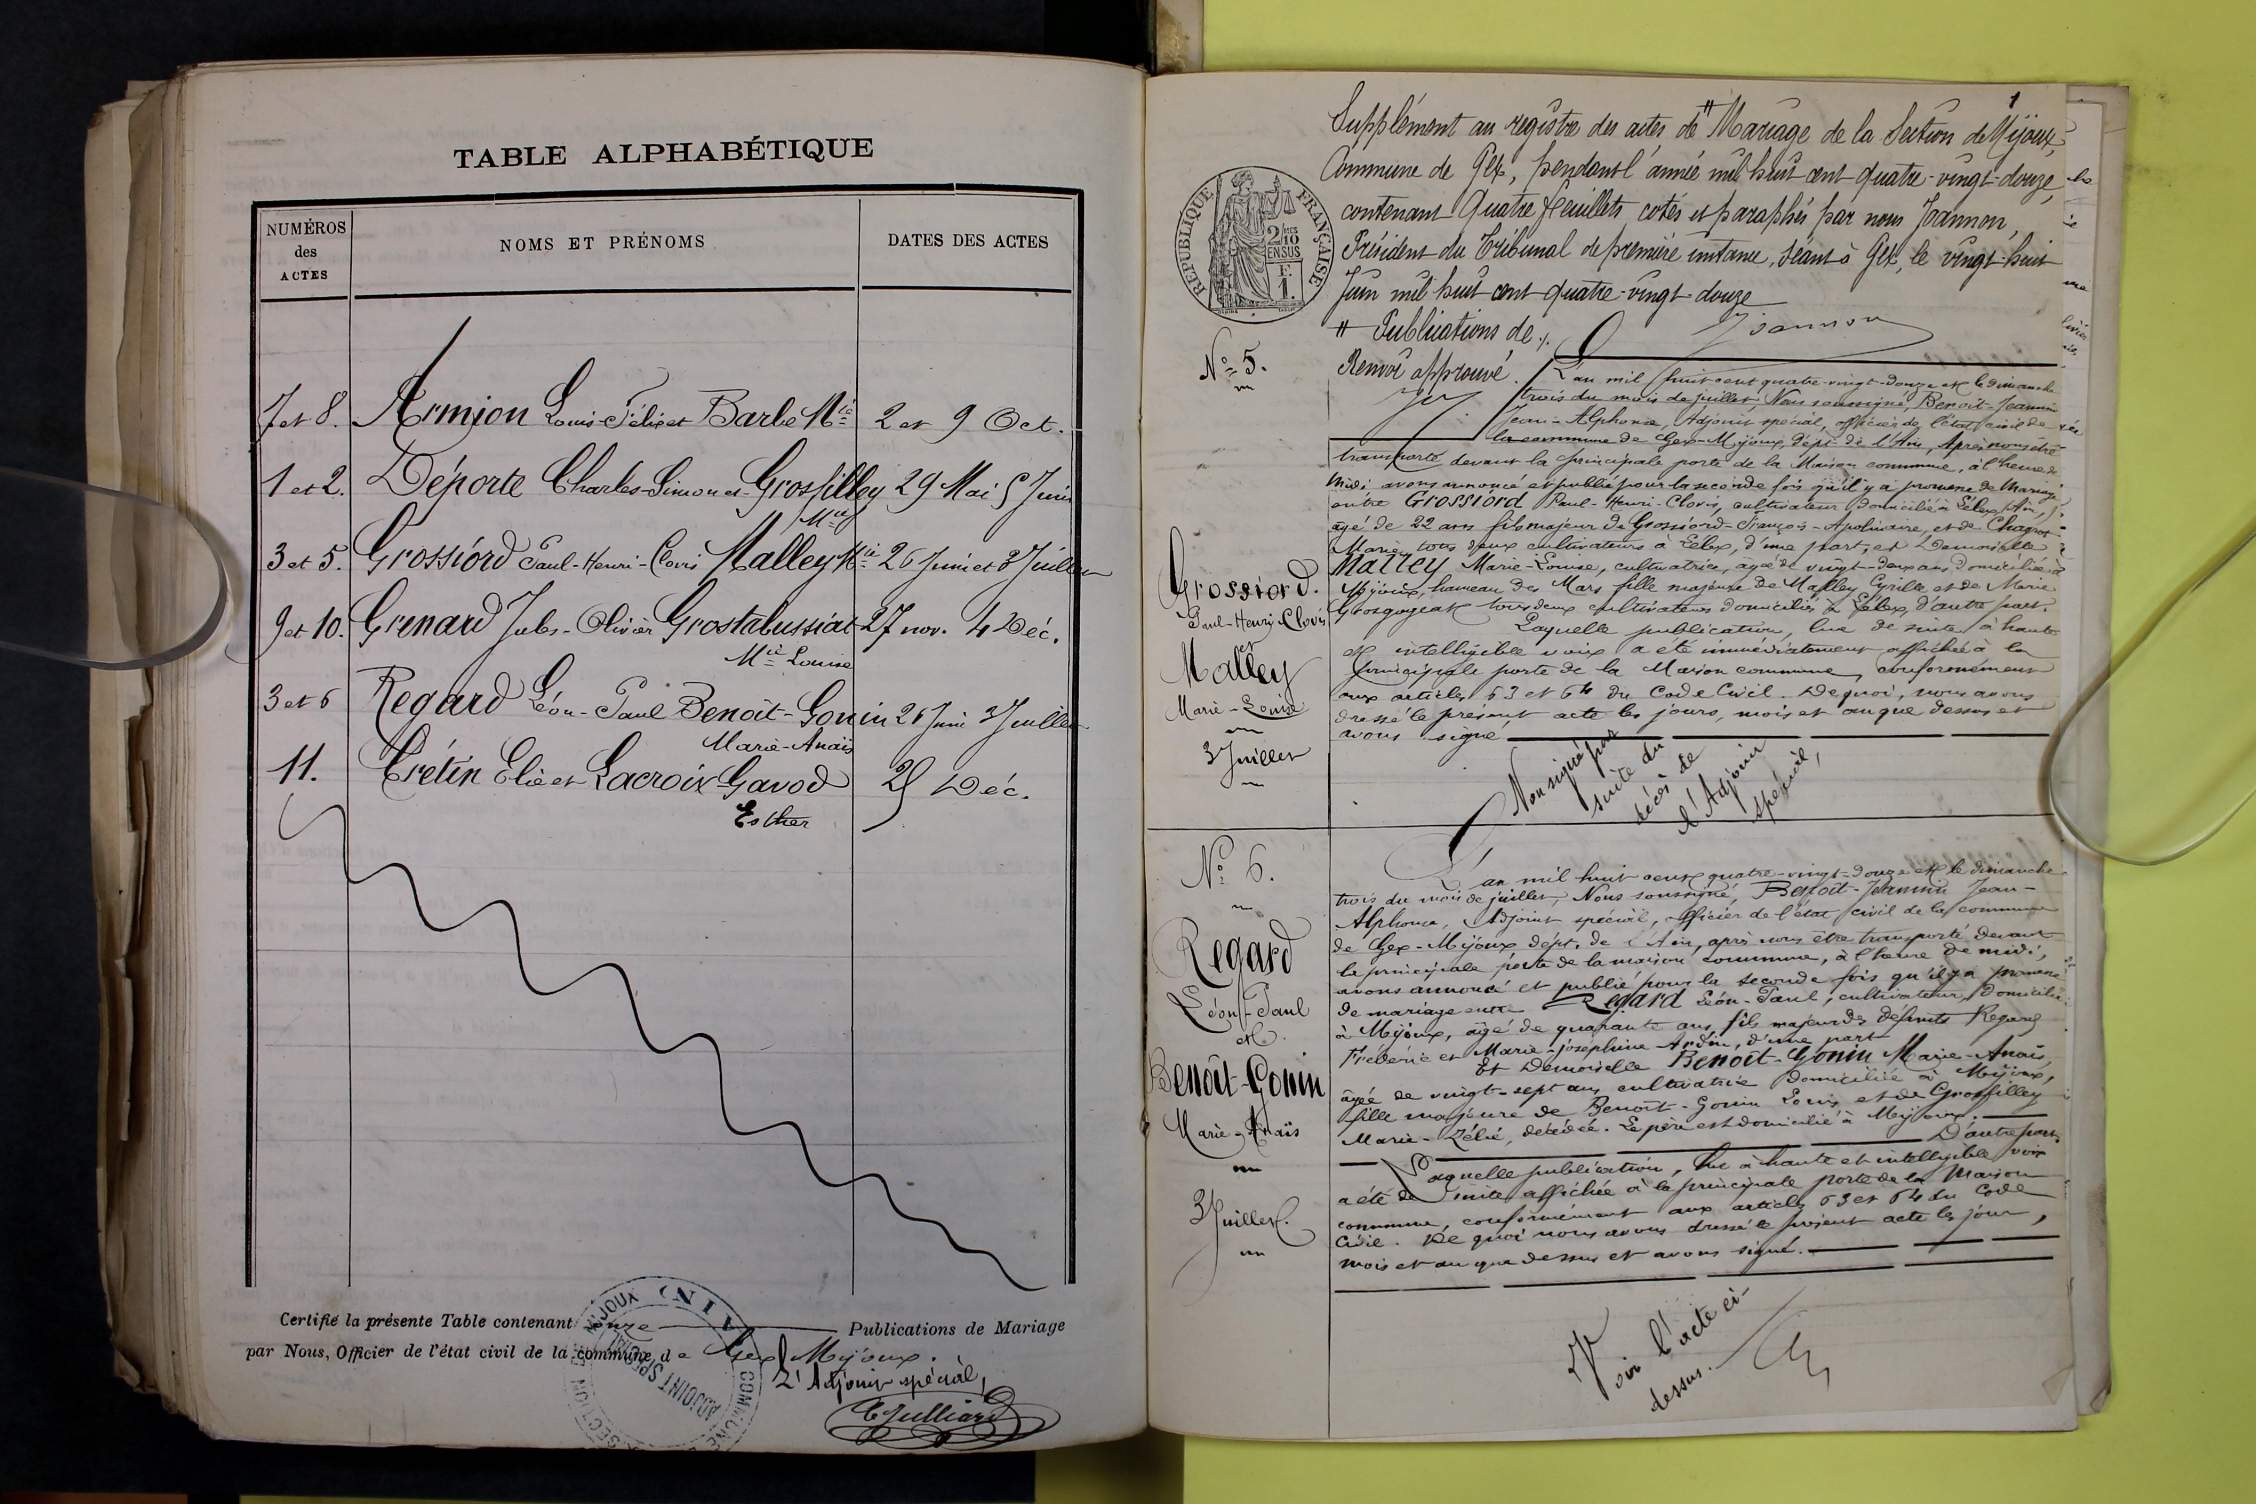 TABLE ALPHABÉTIQUE
NUMÉROS des ACTES
NOMS ET PRÉNOMS
DATES DES ACTES
7 et 8. Armion Louis-Félix et Barbe Mie 2 et 9 Oct.
1 et 2. Déporte Charles-Simon et Grosfilley 29 Mai 5 Juin
3 et 5. Grossiord Paul-Henri-Clovis Malley Mie 26 Juin et 3 Juillet
9 et 10. Grenard Jules-Olivier Grostabussiat 27 nov. 4 Déc.
Mie Louise
3 et 6 Regard Léon-Paul Benoit-Gonin 26 Juin 3 Juillet
Marie-Anaïs
11. Crétin Elie et Lacroix-Gavod 25 Déc.
Esther
Certifié la présente Table contenant onze Publications de Mariage
par Nous, Officier de l'état civil de la commune de Gex-Mijoux.
L'Adjoint spécial,
Julliard
MIJOUX (AIN)
ADJOINT SPÉCIAL
SECTION
COMMUNE
1
Supplément au registre des actes de # Mariage de la Section de Mijoux,
Commune de Gex, pendant l'année mil huit cent quatre-vingt-douze,
contenant Quatre feuillets cotés et paraphés par nous Joannon,
Président du Tribunal de première instance, séant à Gex, le vingt-huit
Juin mil huit cent quatre-vingt-douze
RÉPUBLIQUE FRANÇAISE
2/10 EN SUS
F. 1.
# Publications de /.
Joannon
Renvoi approuvé.
No 5.
L'an mil huit cent quatre-vingt-douze et le dimanche
trois du mois de juillet, Nous soussigné, Benoit-Jeannin
Jean-Alphonse, Adjoint spécial, officier de l'état civil de
la commune de Gex-Mijoux, dépt de l'Ain, Après nous être
transporté devant la principale porte de la Maison commune, à l'heure de
Midi avons annoncé et publié pour la seconde fois qu'il y a promesse de Mariage
entre Grossiord Paul-Henri-Clovis, cultivateur domicilié à Lélex, Ain,
âgé de 22 ans fils majeur de Grossiord-François-Apolinaire, et de Chagros-
Marie, tous deux cultivateurs à Lélex, d'une part, et Demoiselle
Malley Marie-Louise, cultivatrice, agée de vingt-deux ans domiciliée à
Mijoux, hameau des Mars fille majeure de Malley Cyrille et de Marie
Grosgogeat tous deux cultivateurs domiciliés à Lélex, d'autre part.
Laquelle publication, lue de suite à haute
et intelligible voix a été immédiatement affichée à la
principale porte de la Maison commune, conformément
aux articles 63 et 64 du Code Civil. De quoi, nous avons
dressé le présent acte les jours, mois et an que dessus et
avons signé
Grossiord.
Paul-Henri Clovis
et
Malley
Marie-Louise
3 Juillet
Non signé par
suite du
décès de
l'Adjoint
spécial,
No 6.
L'an mil huit cent quatre-vingt-douze et le dimanche
trois du mois de juillet, Nous soussigné, Benoit-Jeannin Jean-
Alphonse, Adjoint spécial, officier de l'état civil de la commune
de Gex-Mijoux dépt. de l'Ain, après nous être transporté devant
la principale porte de la maison commune, à l'heure de midi,
avons annoncé et publié pour la seconde fois qu'il y a promesse
de mariage entre Regard Léon-Paul, cultivateur, domicilié
à Mijoux, âgé de quarante ans, fils majeur des défunts Regard
Fréderic et Marie-joséphine Ardin, d'une part
Et Demoiselle Benoit-Gonin Marie-Anaïs,
âgée de vingt-sept ans cultivatrice domiciliée à Mijoux,
fille majeure de Benoit-Gonin Louis et de Grosfilley
Marie-Zélié, décédée. Le père est domicilié à Mijoux.
D'autre part,
Laquelle publication, lue à haute et intelligible voix
a été de suite affichée à la principale porte de la Maison
commune, conformément aux articles 63 et 64 du Code
Civil. De quoi nous avons dressé le présent acte les jour,
mois et an que dessus et avons signé.
Regard
Léon-Paul
et
Benoit-Gonin
Marie-Anaïs
3 Juillet.
Voir l'acte ci-
dessus.